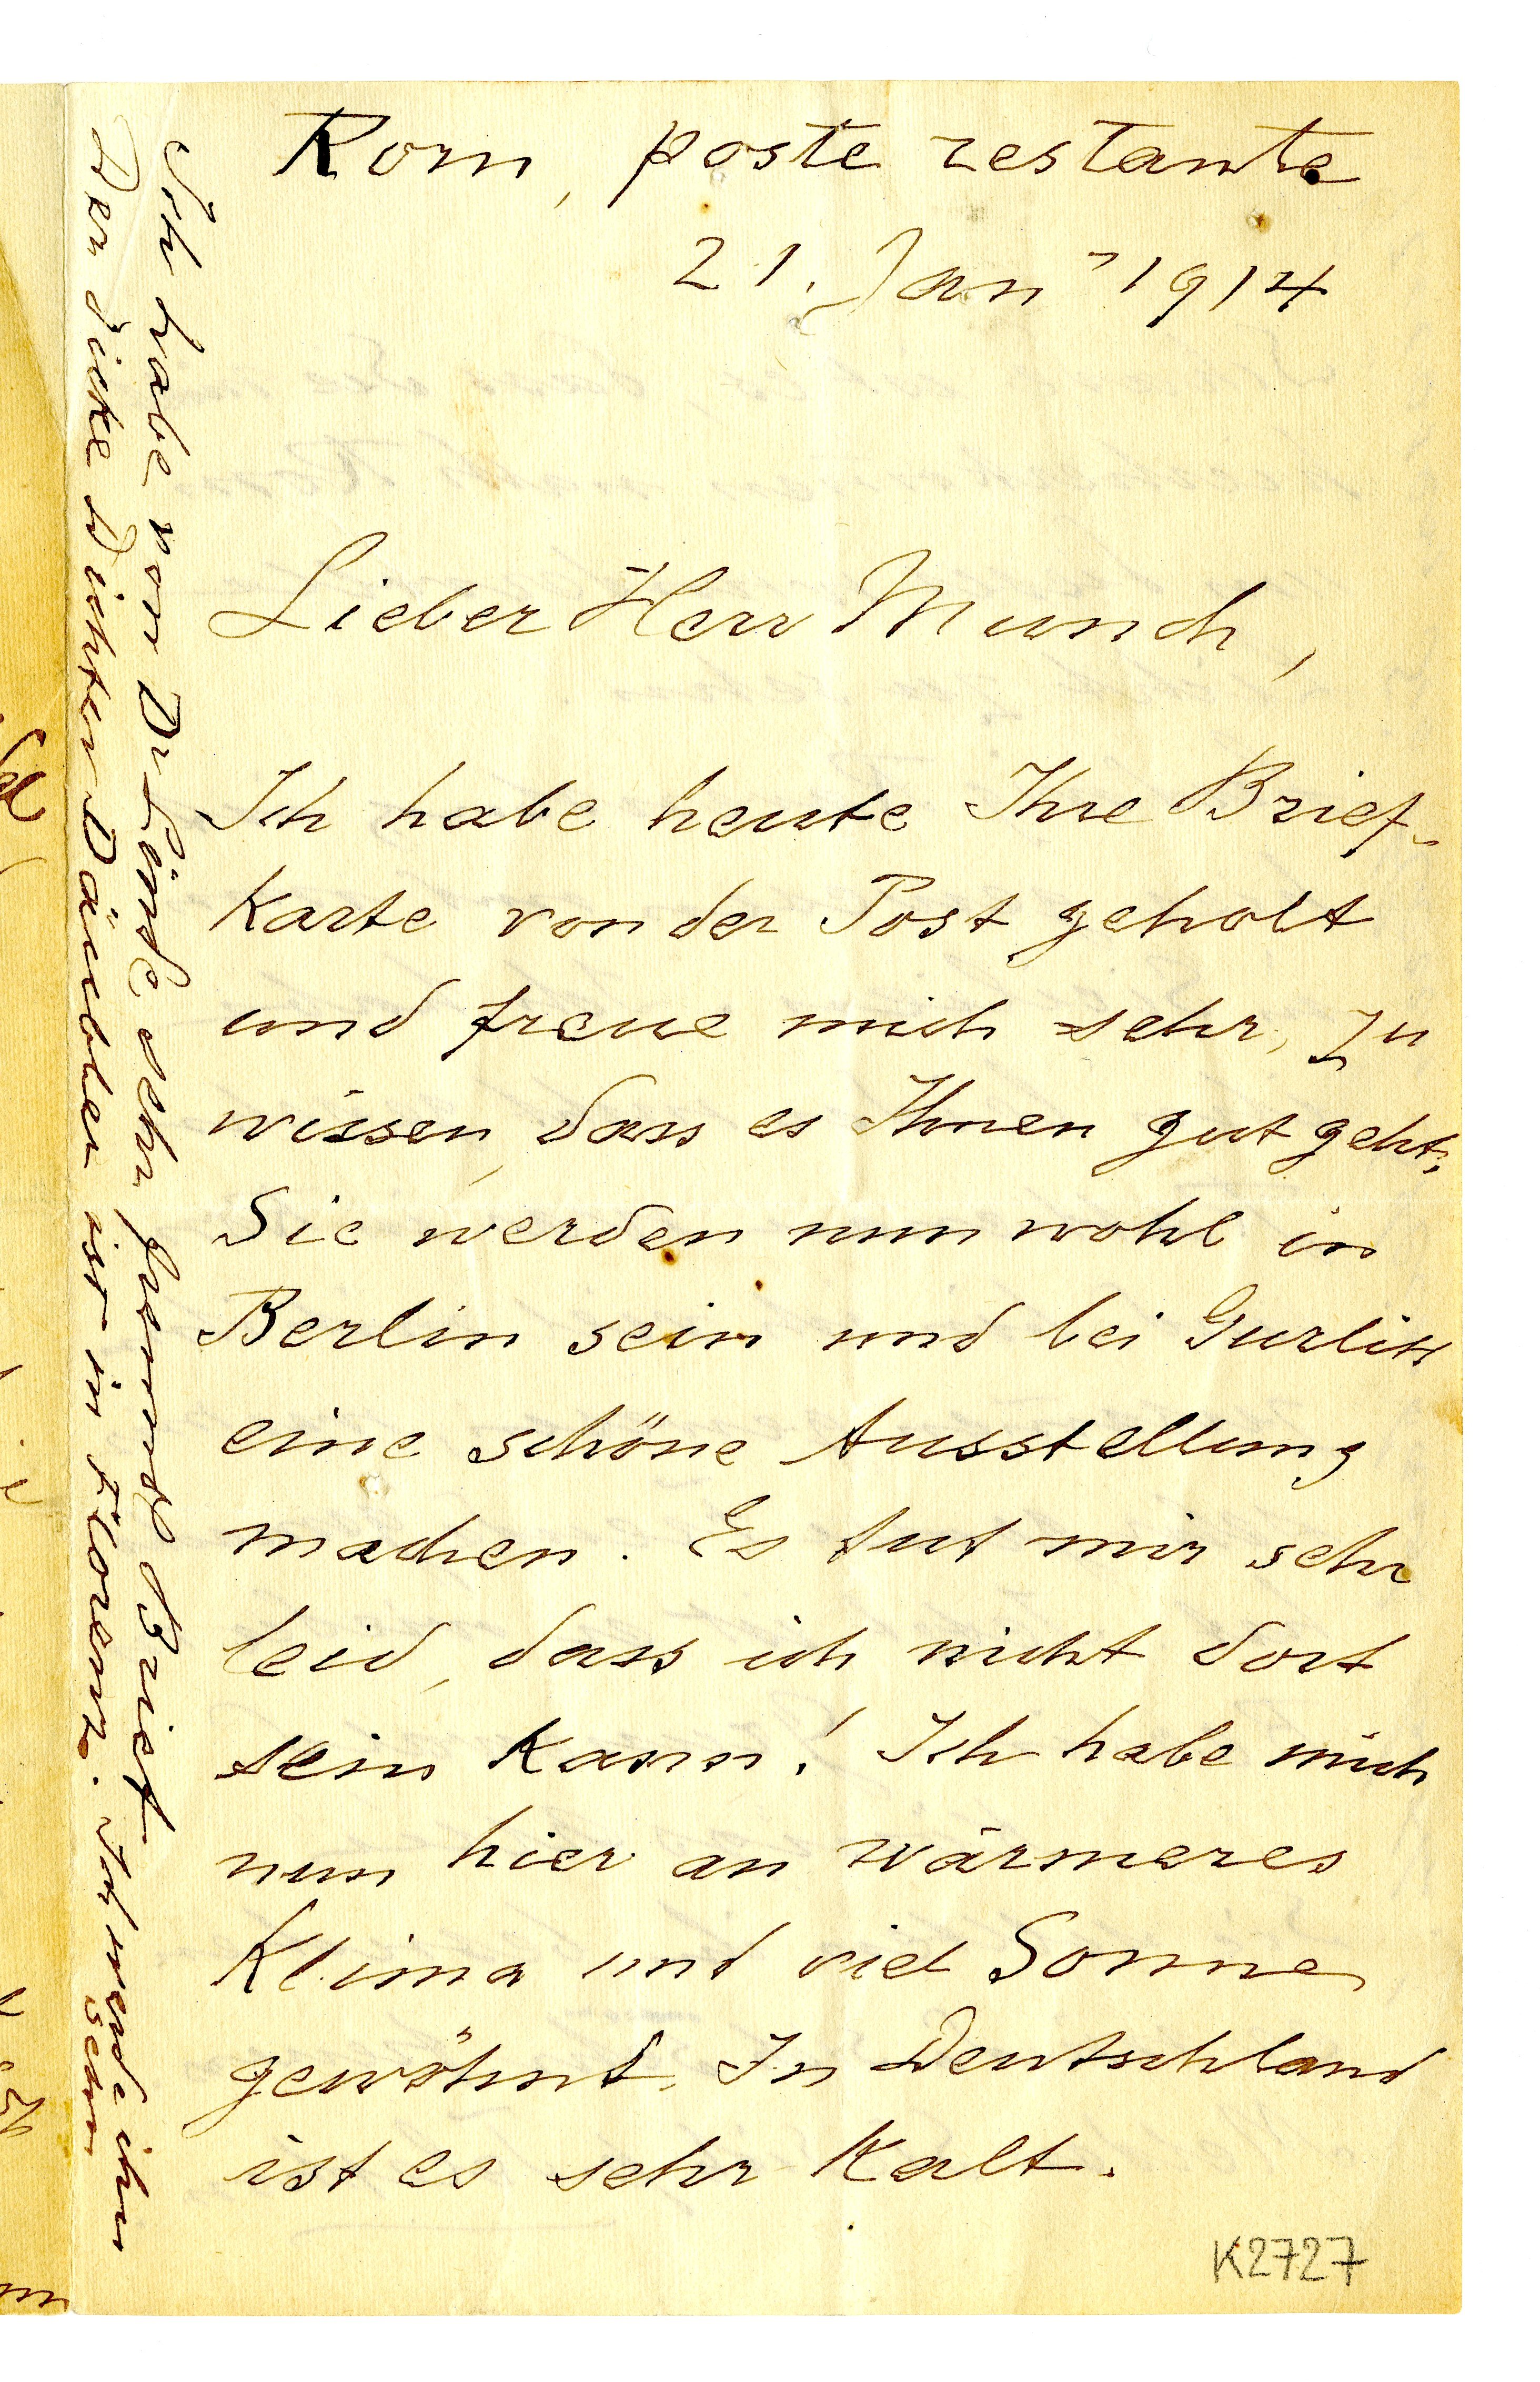 Rom, poste restante
21. Jan 1914
Lieber Herr Munch,
Ich habe heute Ihre Brief-
karte von der Post geholt
und freue mich sehr, zu
wissen, dass es Ihnen gut geht.
Sie werden nun wohl in
Berlin sein und bei Gurlitt
eine schöne Ausstellung
machen. Es tut mir sehr
leid, dass ich nicht dort
sein kann! Ich habe mich
nun hier an wärmeres
Klima und viel Sonne
gewöhnt. In Deutschland
ist es sehr kalt.
Ich habe von Dr Linde sehr freundl Brief.
Der dicke Dichter Däubler ist in Florenz. Ich werde ihn
sehn
K2727